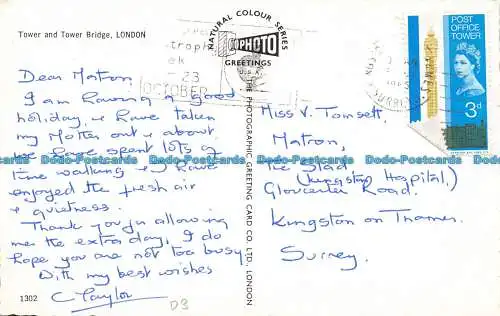 Tower and Tower Bridge, LONDON
NATURAL COLOUR SERIES
PHOTO
GREETINGS
23
OCTOBER
POST
OFFICE
TOWER
3d
Dear Matron,
I am having a good
holiday, & have taken
my Mother out & about.
We have spent lots of
time walking & I have
enjoyed the fresh air
& quietness.
Thank you for allowing
me the extra day, I do
hope you are not too busy
With my best wishes
C Taylor
1302
D3
THE PHOTOGRAPHIC GREETING CARD CO. LTD., LONDON
Miss V. Tomsett,
Matron,
The Slad
(Kingston Hospital,)
Gloucester Road.
Kingston on Thames.
Surrey.
Dodo-Postcards Dodo-Postcards Dodo-Postcards Dodo-Postcards Dodo-Postcards Dodo-Postcards